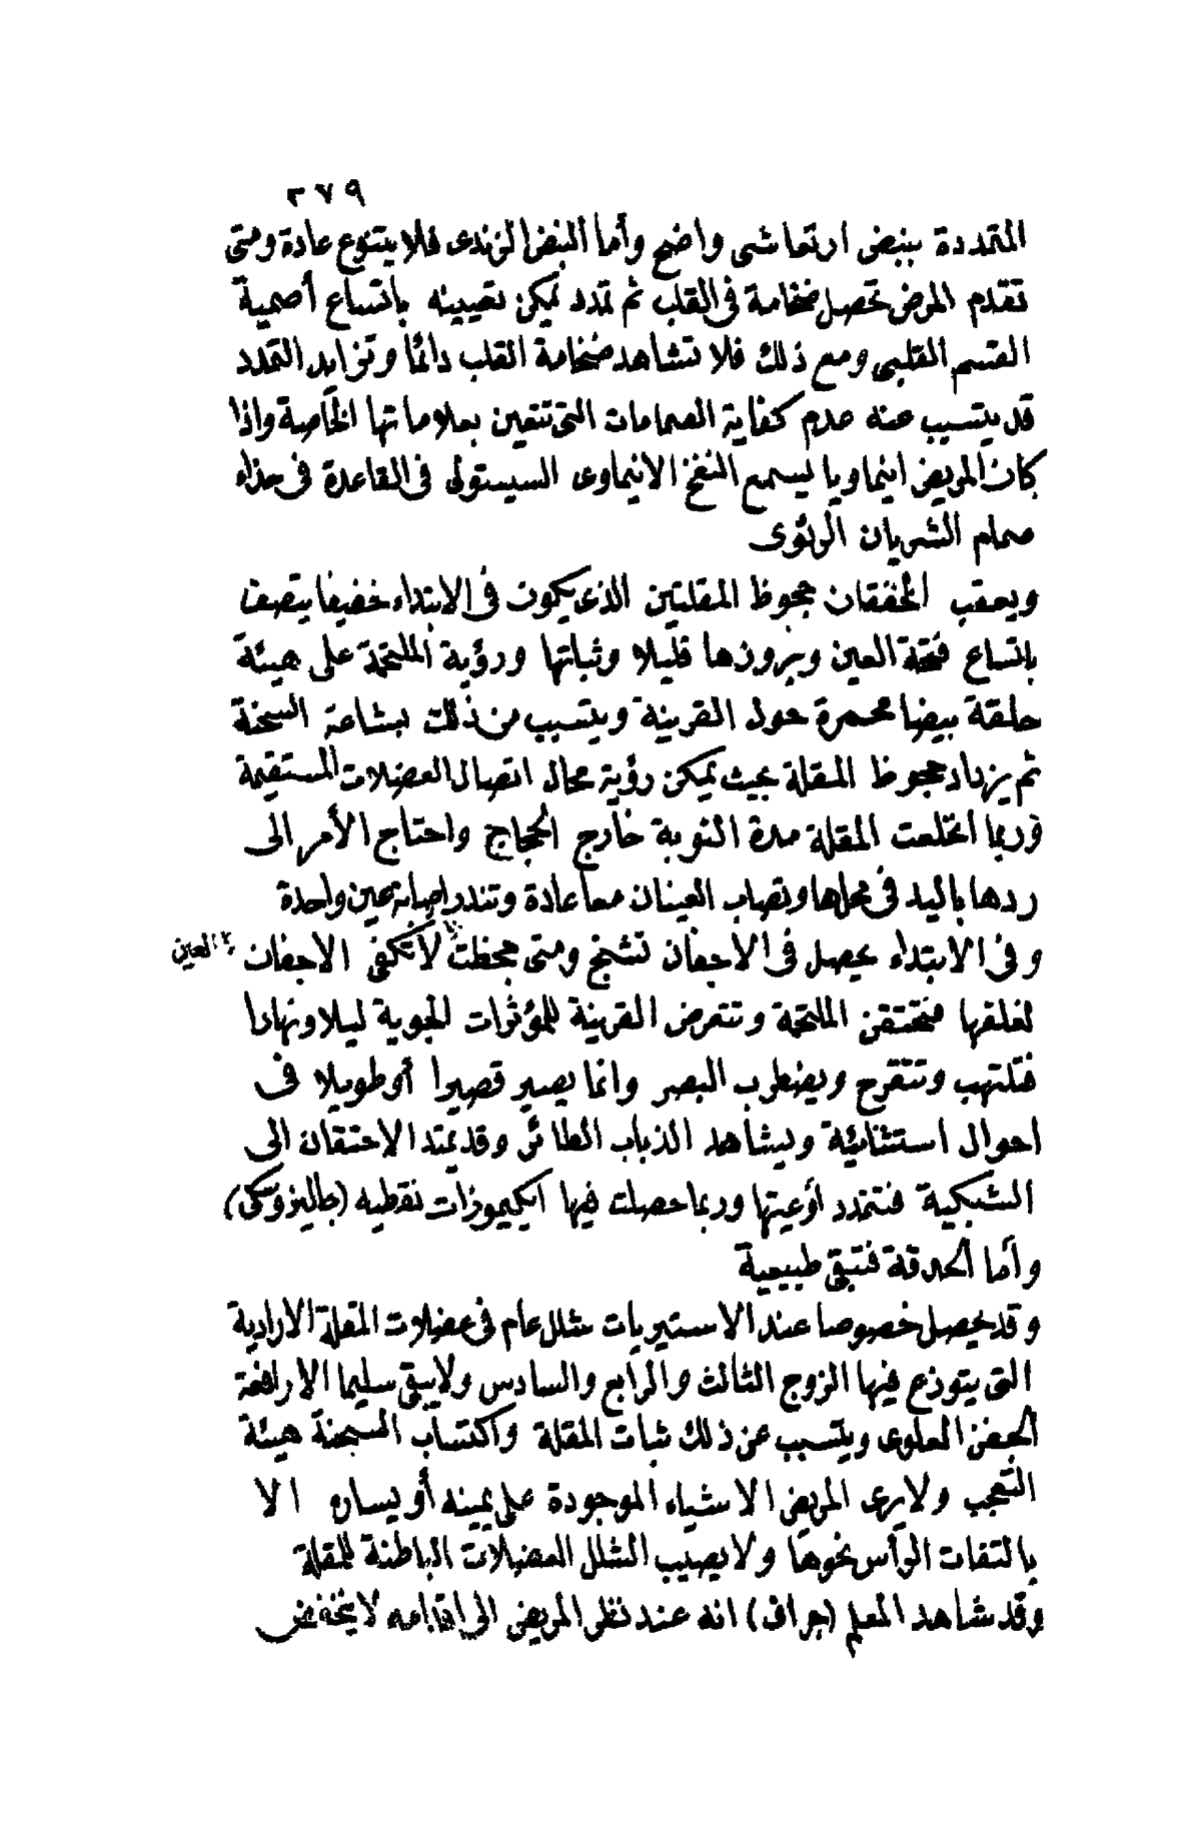 ٣٧٩
المتمددة بنبض ارتعاشى واضح وأما النبض الزندى فلا يتنوع عادة ومتى
تقدم المرض تحصل ضخامة فى القلب ثم تمدد يمكن تعيينه باتساع أصمية
القسم القلبى ومع ذلك فلا تشاهد ضخامة القلب دائما وتزايد التمدد
قد يتسبب عنه عدم كفاية الصمامات التى تتعين بعلاماتها الخاصة واذا
كان المريض انيماويا يسمع النفخ الانيماوى السيستولى فى القاعدة فى حذاء
صمام الشريان الرئوى
ويعقب الخفقان جحوظ المقلتين الذى يكون فى الابتداء خفيفا يتصف
باتساع فتحة العين وبروزها قليلا وثباتها ورؤية الملتحمة على هيئة
حلقة بيضا محمرة حول القرنية ويتسبب من ذلك بشاعة السحنة
ثم يزداد جحوظ المقلة بحيث يمكن رؤية محال اتصال العضلات المستقيمة
وربما انخلعت المقلة مدة النوبة خارج الحجاج واحتاج الأمر الى
ردها باليد فى محلها وتصاب العينان معا عادة وتندر اصابة عين واحدة
وفى الابتداء يحصل فى الاجفان تشنج ومتى جحظت لا تكفى الاجفان العين
لغلقها فتحتقن الملتحمة وتتعرض القرنية للمؤثرات الجوية ليلا ونهارا
فتلتهب وتتقرح ويضطرب البصر وانما يصير قصيرا أو طويلا فى
احوال استثنائية ويشاهد الذباب الطائر وقد يمتد الاحتقان الى
الشبكية فتتمدد أوعيتها وربما حصلت فيها ايكيموزات نقطيه (جاليزوسكى)
وأما الحدقة فتبقى طبيعية
وقد يحصل خصوصا عند الاستيريات شلل عام فى عضلات المقلة الارادية
التى يتوزع فيها الزوج الثالث والرابع والسادس ولا يبقى سليما الا رافعة
الجفن العلوى ويتسبب عن ذلك ثبات المقلة واكتساب السحنة هيئة
التعجب ولا يرى المريض الاشياء الموجودة على يمينه أو يساره الا
بالتفات الرأس نحوها ولا يصيب الشلل العضلات الباطنة للمقلة
وقد شاهد المعلم (جراف) انه عند نظر المريض الى اقدامه لا ينخفض